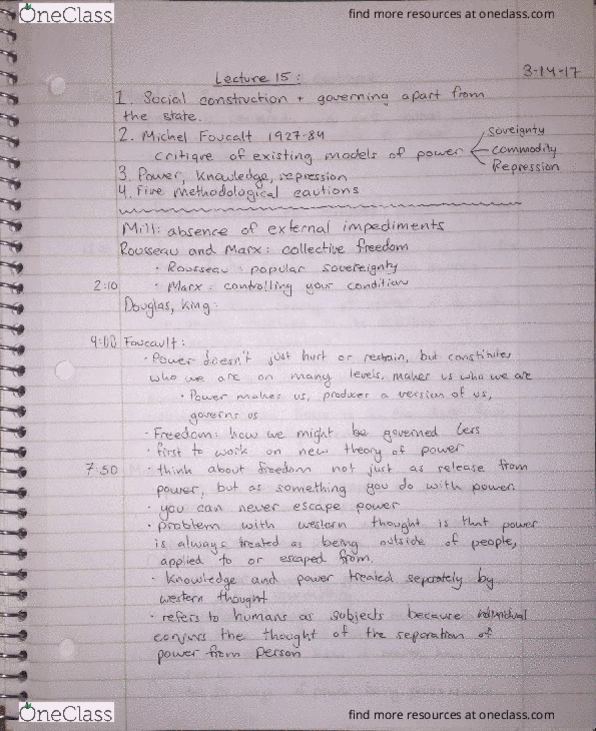 OneClass
find more resources at oneclass.com
3-14-17
Lecture 15:
1. Social construction + governing apart from
the state.
2. Michel Foucalt 1927-84
critique of existing models of power
soveignty
commodity
Repression
3. Power, Knowledge, repression
4. Five methodological cautions
Mill: absence of external impediments
Rousseau and Marx: collective freedom
• Rousseau: popular sovereignty
2:10 • Marx: controlling your condition
Douglas, King:
4:00 Foucault:
• Power doesn't just hurt or restrain, but constitutes
who we are on many levels, makes us who we are
• Power makes us, produces a version of us,
governs us
• Freedom: how we might be governed less
• first to work on new theory of power
7:50 • think about freedom not just as release from
power, but as something you do with power.
• you can never escape power
• problem with western thought is that power
is always treated as being outside of people,
applied to or escaped from.
• Knowledge and power treated separately by
western thought
• refers to humans as subjects because individual
conjurs the thought of the separation of
power from person
OneClass
find more resources at oneclass.com